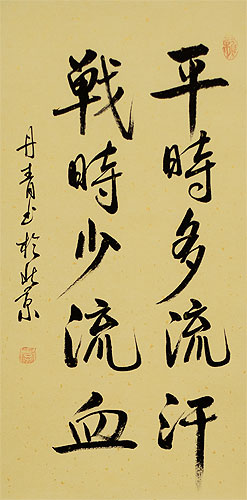 平時多流汗
戦時少流血
丹青書於北京